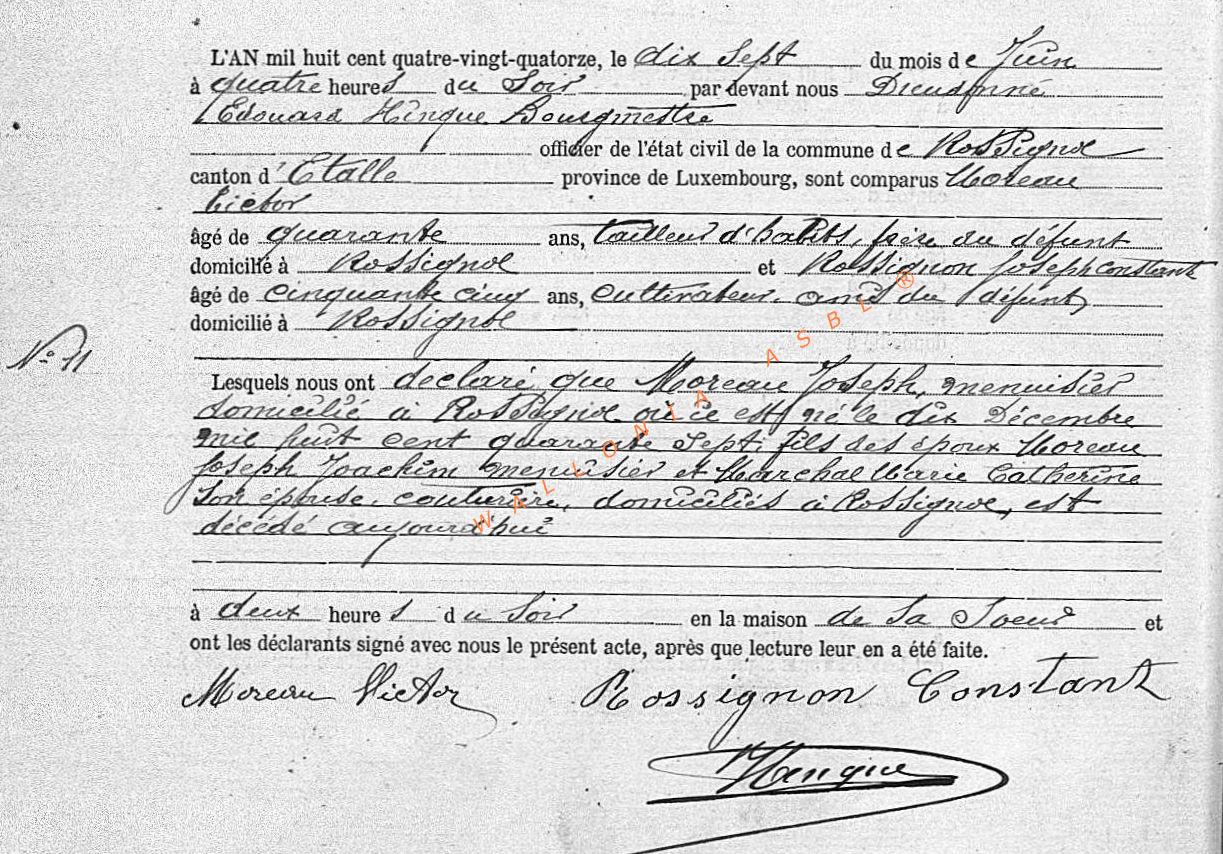 L'AN mil huit cent quatre-vingt-quatorze, le dix Sept du mois de Juin
à quatre heures du Soir par devant nous Dieudonné
Edouard Hinque Bourgmestre
officier de l'état civil de la commune de Rossignol
canton d'Etalle province de Luxembourg, sont comparus Moreau
Victor
âgé de quarante ans, tailleur d'habits, frère du défunt
domicilié à Rossignol et Rossignon Joseph Constant
âgé de cinquante cinq ans, cultivateur, ami du défunt,
domicilié à Rossignol
N° 11
Lesquels nous ont déclaré que Moreau Joseph, menuisier
domicilié à Rossignol où il est né le dix Décembre
mil huit cent quarante Sept, fils des époux Moreau
Joseph Joachim menuisier et Marchal Marie Catherine
Son épouse, couturière, domiciliés à Rossignol, est
décédé aujourd'hui
à deux heures du Soir en la maison de Sa Soeur et
ont les déclarants signé avec nous le présent acte, après que lecture leur en a été faite.
Moreau Victor Rossignon Constant
Hinque
WALLONIA ASBL ®